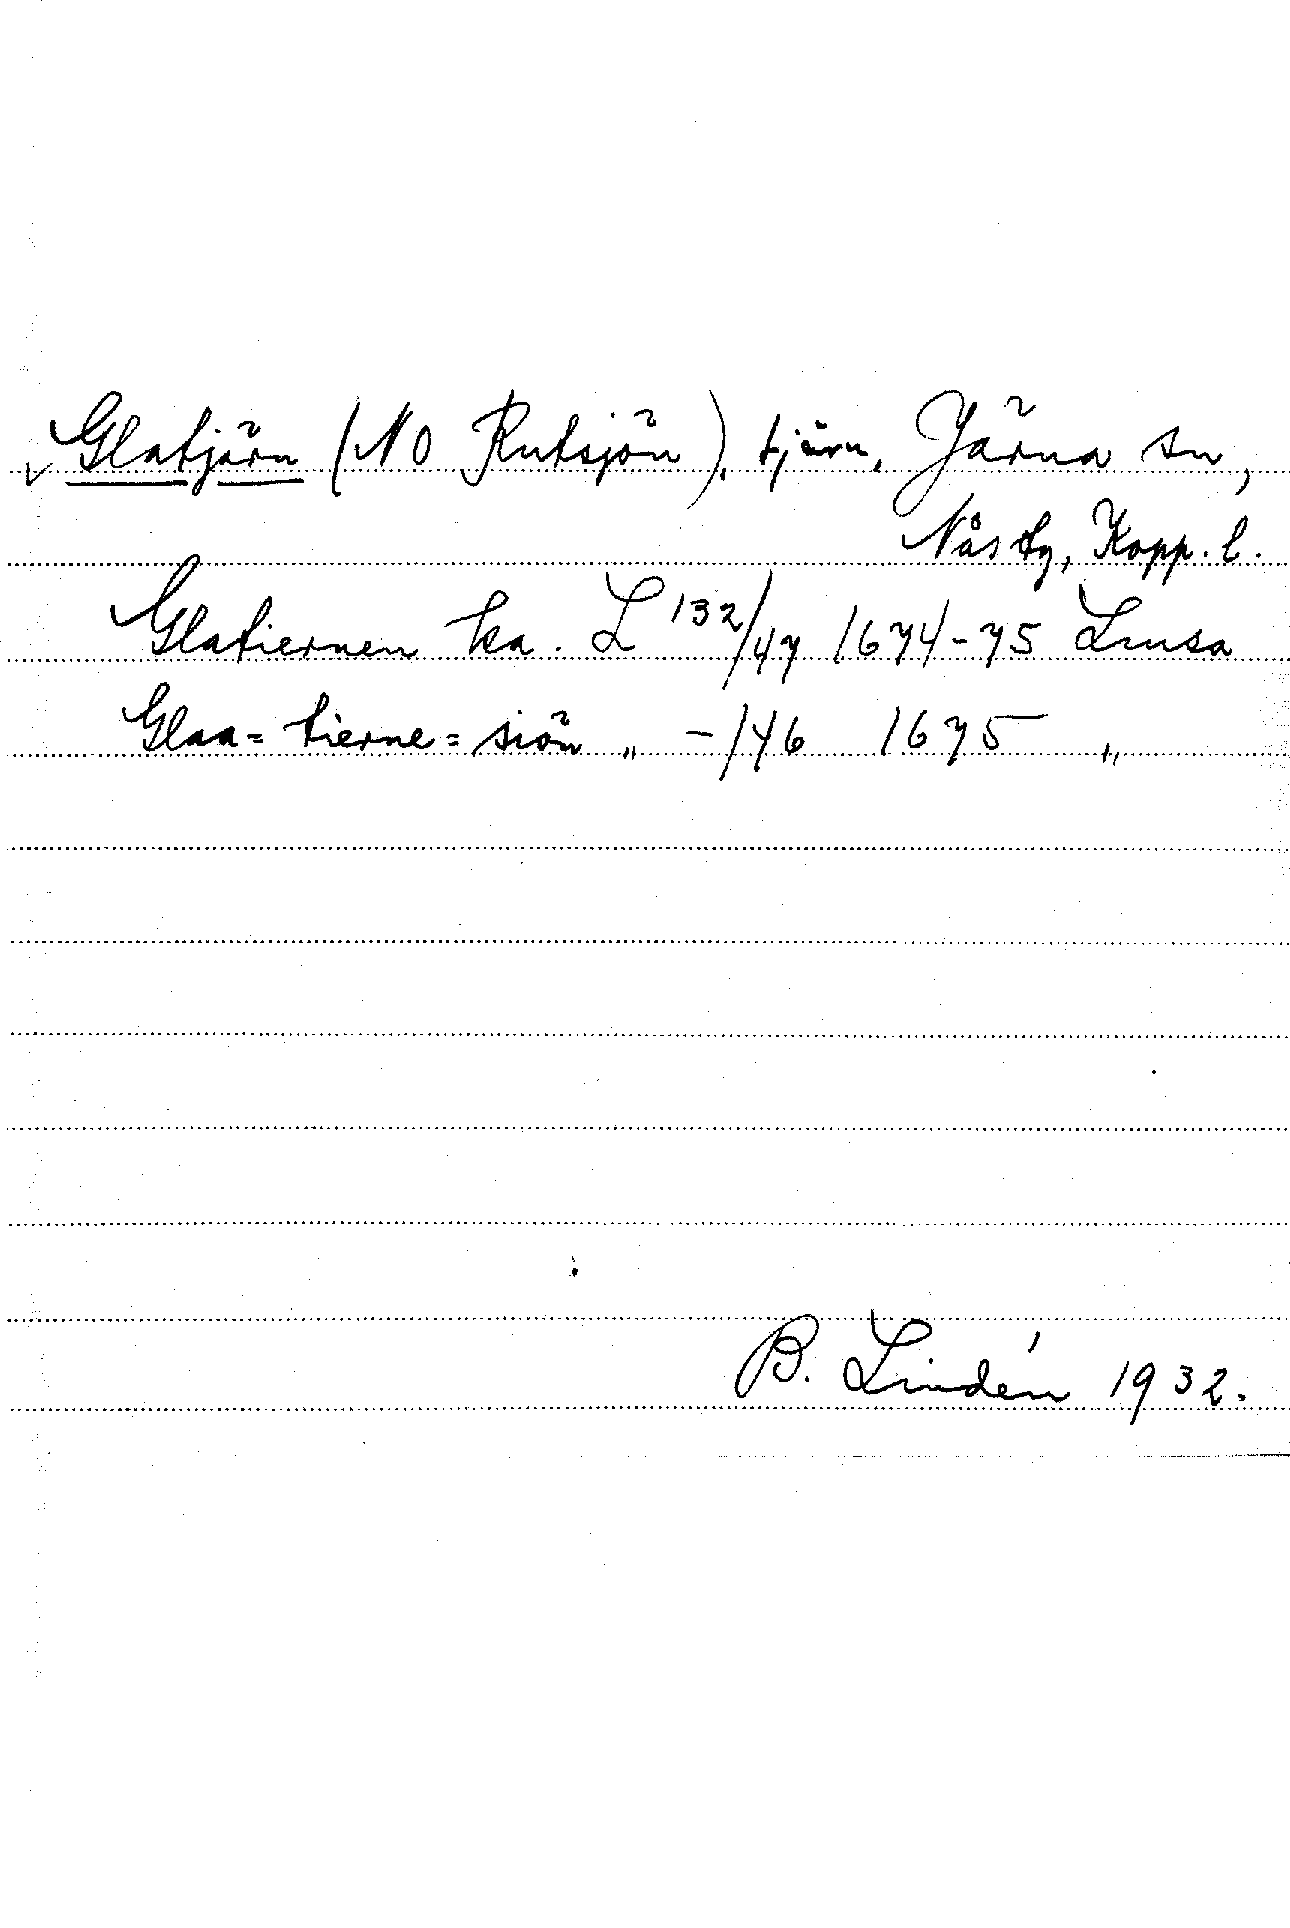 Glatjärn (NO Rutsjön), tjärn, Järna sn,
Nås tg, Kopp. l.
Glatiernen ka. L 132/47 1674-75 Lnusa
Glaa= tierne= siön „ -/46 1675 „
B. Lindén 1932.